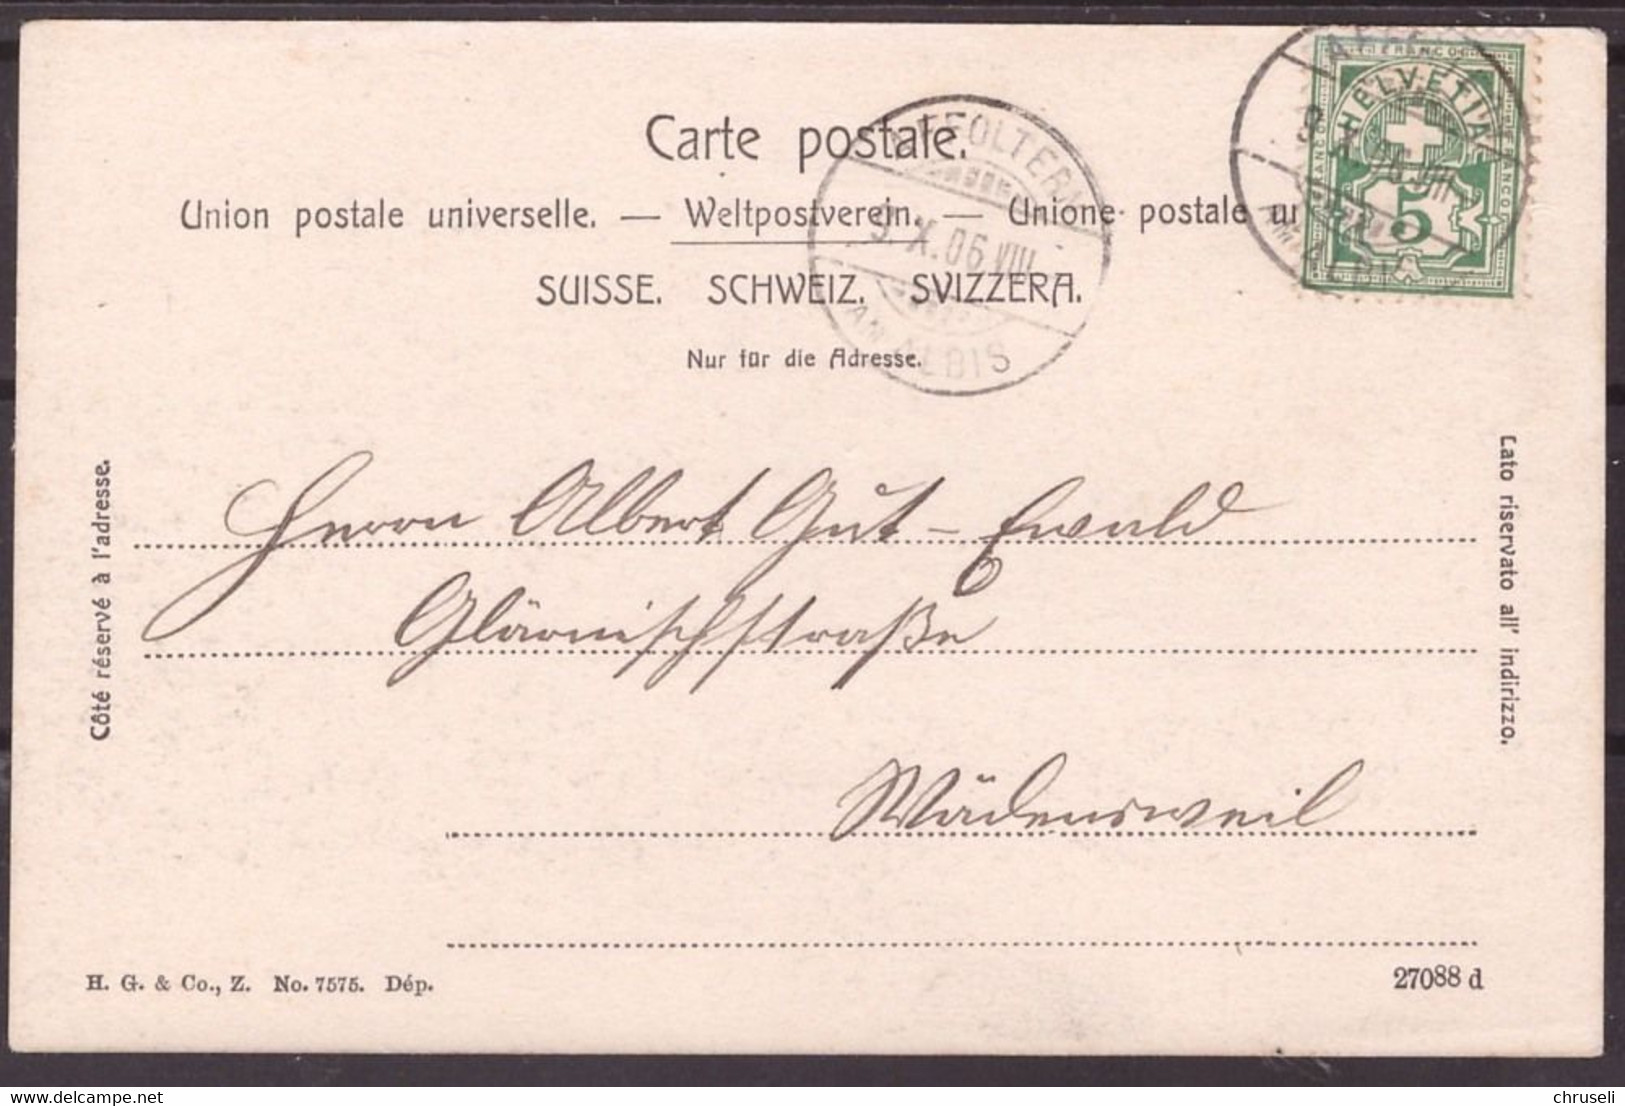 Carte postale.
Union postale universelle. — Weltpostverein. — Unione postale
SUISSE. SCHWEIZ. SVIZZERA.
Nur für die Adresse.
AFFOLTERN
9.X.06.VIII
AM ALBIS
FRANCO
HELVETIA
FRANCO
FRANCO
5
9.X.06.VIII
AM ALBIS
Côté réservé à l'adresse.
Lato riservato all' indirizzo.
Herrn Albert Gut - Ewald
Glärnischstraße
Wädensweil
H. G. & Co., Z. No. 7575. Dép.
27088 d
delcampe.net
chruseli